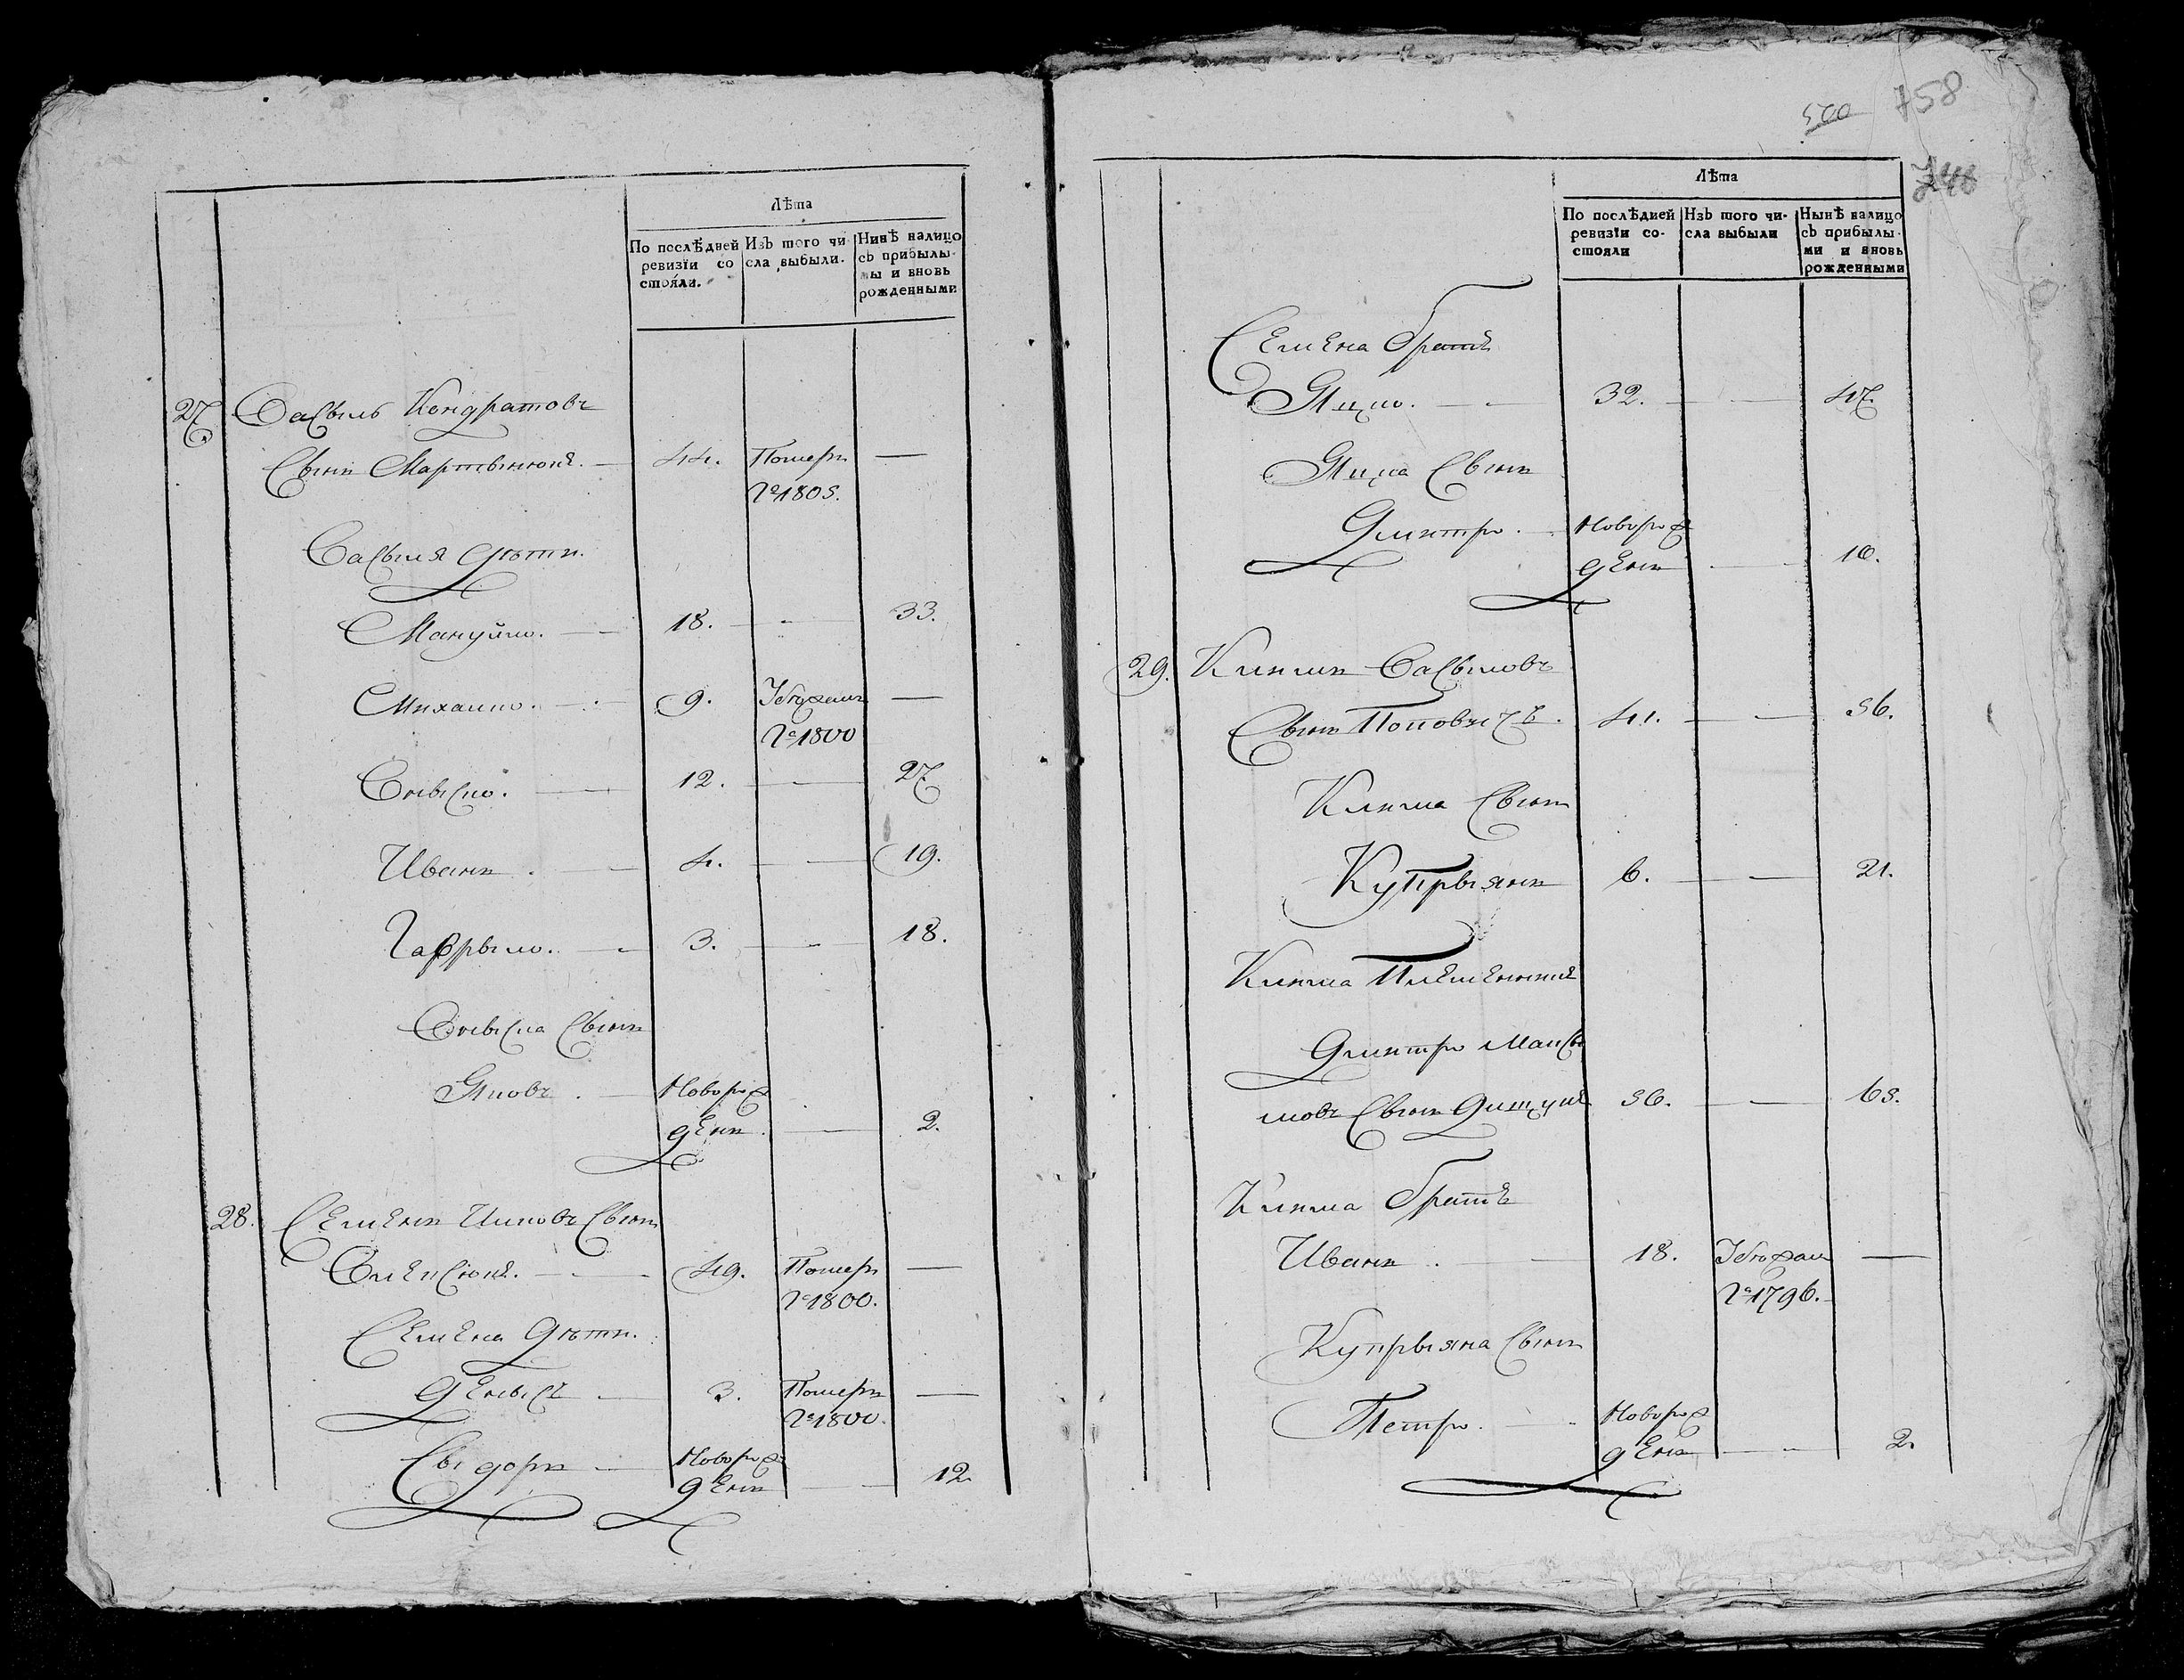 Лѣта
По послѣдней ревизїи со стояли.
Изъ того чи сла выбыли.
Нинѣ налицо съ прибылы мы и вновь рожденными
27 Василь Кондратовъ
сынъ Мартынюкъ. 44. Померъ —
Гᵒ 1805.
Василя дѣти.
Мануйло. 18. 33.
Михайло. 9. Убѣжалъ —
Гᵒ 1800
12. 27
Иванъ. 4. 19.
Гаврыло. 3. 18.
сынъ
Яковъ. Новорож
денъ. 2.
28. Семенъ сынъ
Олексюкъ. 49. Померъ —
Гᵒ 1800.
Семена дѣти.
Денысъ 3. Померъ —
Гᵒ 1800.
Сыдоръ Новорож
денъ 12
500 758
Лѣта
По послѣдней ревизїи со- стояли
Изъ того чи- сла выбыли
Нынѣ налицо съ прибылы- ми и вновь рожденными
Семена братъ
Яцко. 32. 47.
Яцка сынъ
Дмитро. Новорож
денъ 10.
29. Климъ Васылювъ
сынъ Поповычъ. 41. 56.
Клима сынъ
Купрыянъ 6. 21.
Клима племенникъ
Дмитро Макси
мовъ сынъ 50. 65.
Клима братъ
Иванъ. 18. Убѣжалъ —
Гᵒ 1796.
Купрыяна сынъ
Петро. Новорож
денъ 2.